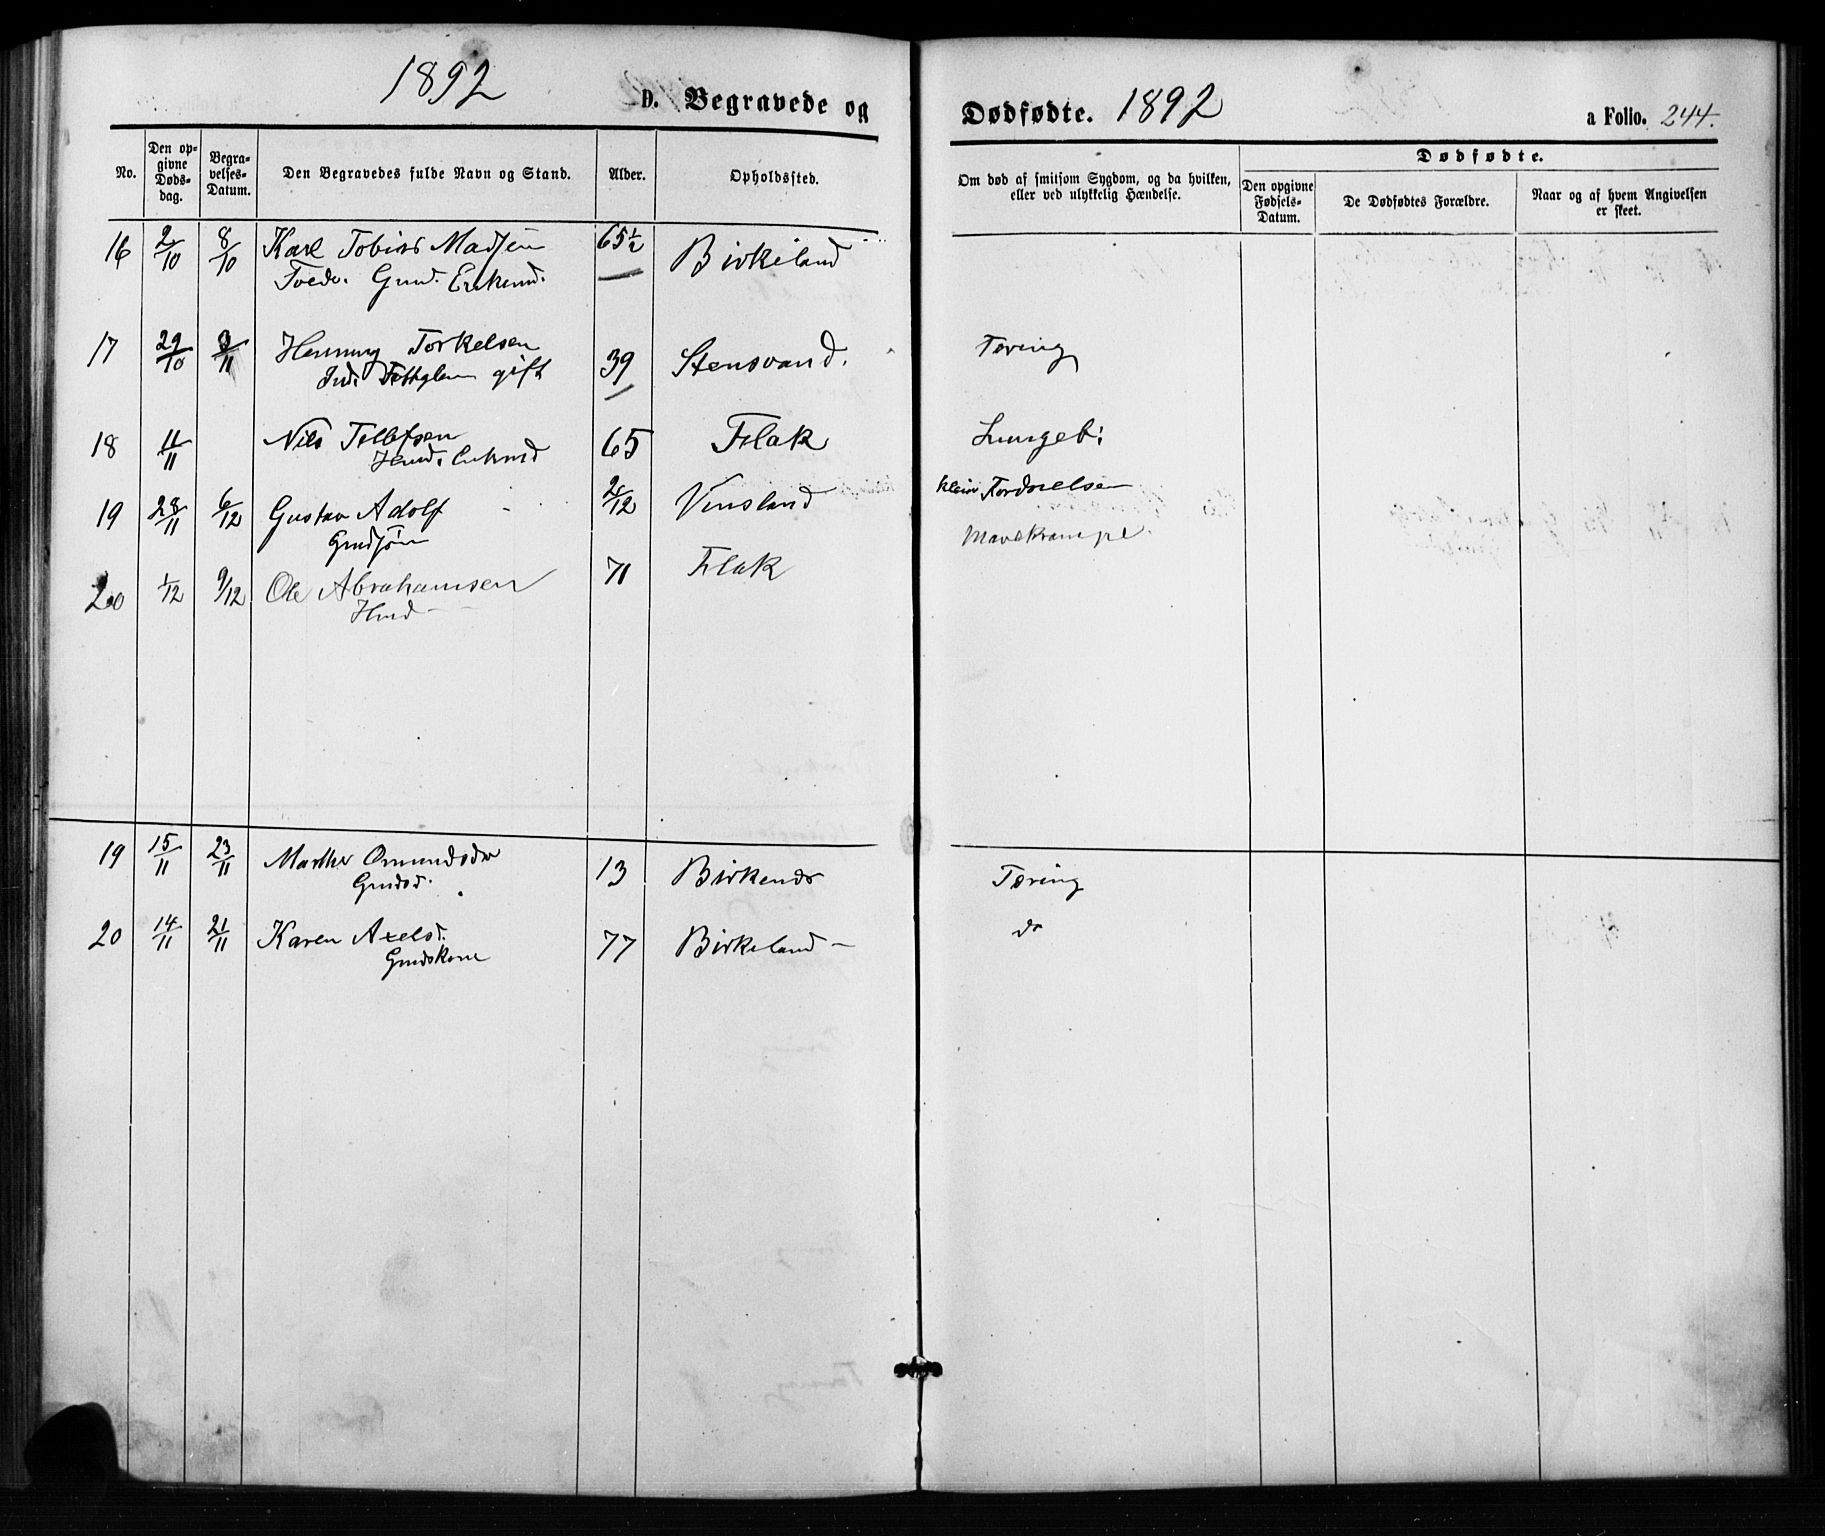 1892
D. Begravede og
Dødfødte. 1892
a Folio. 244.
No.
Den op-
givne
Døds-
dag.
Begra-
velses-
Datum.
Den Begravedes fulde Navn og Stand.
Alder.
Opholdssted.
Om død af smitsom Sygdom, og da hvilken,
eller ved ulykkelig Hændelse.
Dødfødte.
Den opgivne
Fødsels-
Datum.
De Dødfødtes Forældre.
Naar og af hvem Angivelsen
er skeet.
16 2/10 8/10 Karl Tobias Madsen 65 1/2 Birkeland
Tvede. Gmd. Enkemd.
17 29/10 /11 Henning Torkelsen 39 Stensvand. Tæring
Ind. gift
18 11/11 Nils Tellefsen 65 Flak Lungeb:
Hmd. Enkmd
19 28/11 6/12 Gustav Adolf 2/12 Vinsland
Gmdsøn
20 1/12 9/12 Ole Abrahamsen 71 Flak Mavekrampe.
Hmd
19 15/11 23/11 Marthe Omundsdr 13 Birkenes Tæring
Gmdsd.
20 14/11 21/11 Karen Axelsd. 77 Birkeland do
Gmdskone